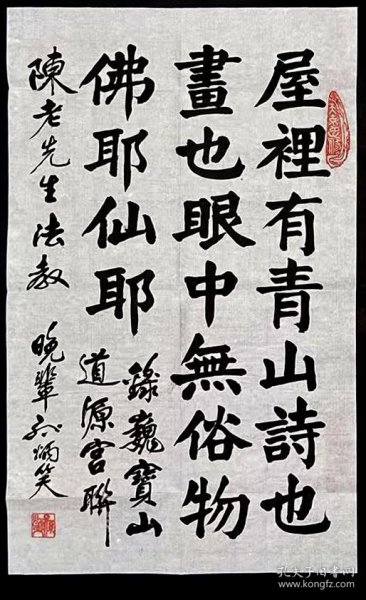 屋裡有青山詩也
畫也眼中無俗物
佛耶仙耶
錄巍寶山
道源宮聯
陳老先生法教
晚輩炳笑
孔夫子旧书网
www.kongfz.com